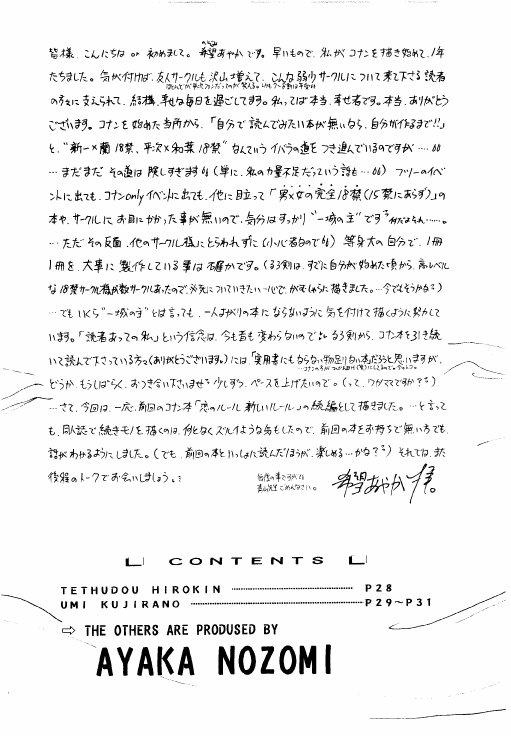 皆様、こんにちは or 初めまして。希望あやかです。早いもので、私がコナンを描き始めて、1年
たちました。気が付けば、友人サークルも沢山増えて、こんな弱少サークルについて来て下さる読者
の方々に支えられて、結構、幸せな毎日を過ごしてます。私っては本当、幸せ者です。本当、ありがとう
ございます。コナンを始めた当所から、「自分で読んでみたい本が無いなら、自分が作るまで!!」
と、“新一×蘭18禁、平次×和葉18禁”なんていうイバラの道をつき進んでいるのですが…
…まだまだその道は険しすぎます(単に、私の力量不足だっていう話も…)フリーのイベ
ントに出ても、コナンonlyイベントに出ても、他に目立って「男×女の完全18禁(15禁にあらず)」の
本や、サークルにお目にかかった事が無いので、気分はすっかり“一城の主”です
…ただその反面、他のサークル様にとらわれずに(小心者なので)等身大の自分で、1冊
1冊を、大事に製作している事は確かです。(るろ剣は、すでに自分が始めた頃から、高レベル
な18禁サークル様が数サークルあったので、必死についていきたい一心で、がむしゃらに描きました。…今でもそうかな?)
…でもいくら“一城の主”とは言っても、一人よがりの本にならないように気を付けて描くように努力して
います。「読者あっての私」という信念は、今も昔も変わらないので るろ剣から、コナン本を引き続
いて読んで下さっている方々(ありがとうございます。)には、「実用書にもならない物足りない本だろうと思いますが、
どうか、もうしばらく、おつき合い下さいませ 少しずつ、ペースを上げたいので。(って、ワガママですか?)
…さて、今回は、一応、前回のコナン本「恋のルール新しいルール」の続編として描きました。…と言って
も、同人誌で続きモノを描くのは、何となくズルイような気もしたので、前回の本をお持ちで無い方でも、
話がわかるようにしました。(でも、前回の本といっしょに読んだほうが、楽しめる…かな?)それでは、また
後程のトークでお会いしましょう。
希望あやか拝。
CONTENTS
TETHUDOU HIROKIN ……… P28
UMI KUJIRANO ……… P29~P31
⇨ THE OTHERS ARE PRODUSED BY
AYAKA NOZOMI